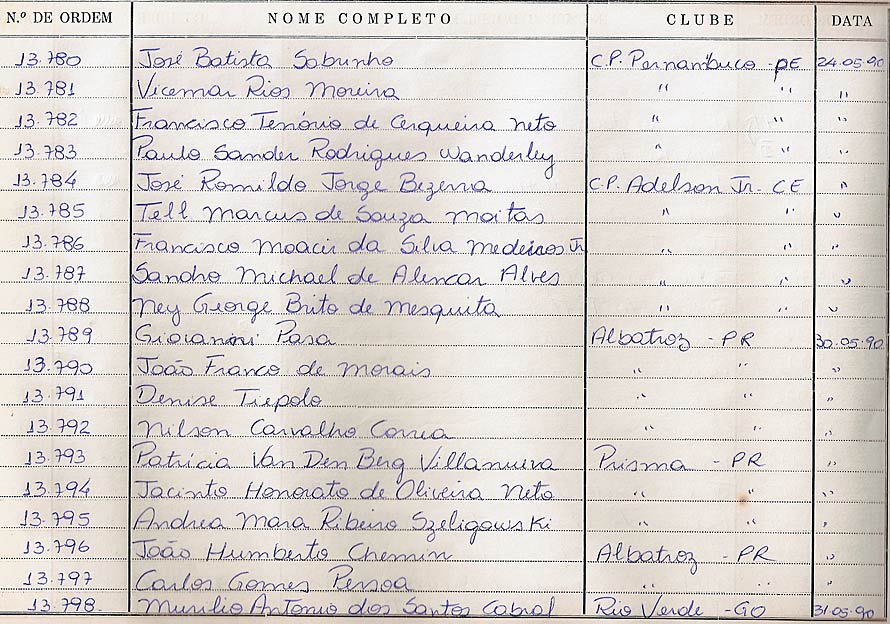 N.º DE ORDEM NOME COMPLETO CLUBE DATA
13.780 José Batista Sobrinho C.P. Pernambuco - PE 24.05.90
13.781 Vicemar Rios Moreira " " "
13.782 Francisco Tenório de Cerqueira Neto " " "
13.783 Paulo Sander Rodrigues Wanderley " " "
13.784 José Romildo Jorge Bezerra C.P. Adelson Jr. CE "
13.785 Tell Marcus de Souza Moitas " " "
13.786 Francisco Moacir da Silva Medeiros Jr " " "
13.787 Sandho Michael de Alencar Alves " " "
13.788 Ney George Brito de Mesquita " " "
13.789 Giovanini Pasa Albatroz - PR 30.05.90
13.790 João Franco de Morais " " "
13.791 Denise Tiepolo " " "
13.792 Nilson Carvalho Correa " " "
13.793 Patricia Van Den Berg Villanueva Prisma - PR "
13.794 Jacinto Honorato de Oliveira Neto " " "
13.795 Andrea Mara Ribeiro Szeligowski " " "
13.796 João Humberto Chemin Albatroz - PR "
13.797 Carlos Gomes Pessoa " " "
13.798 Murilio Antonio dos Santos Cabral Rio Verde - GO 31.05.90